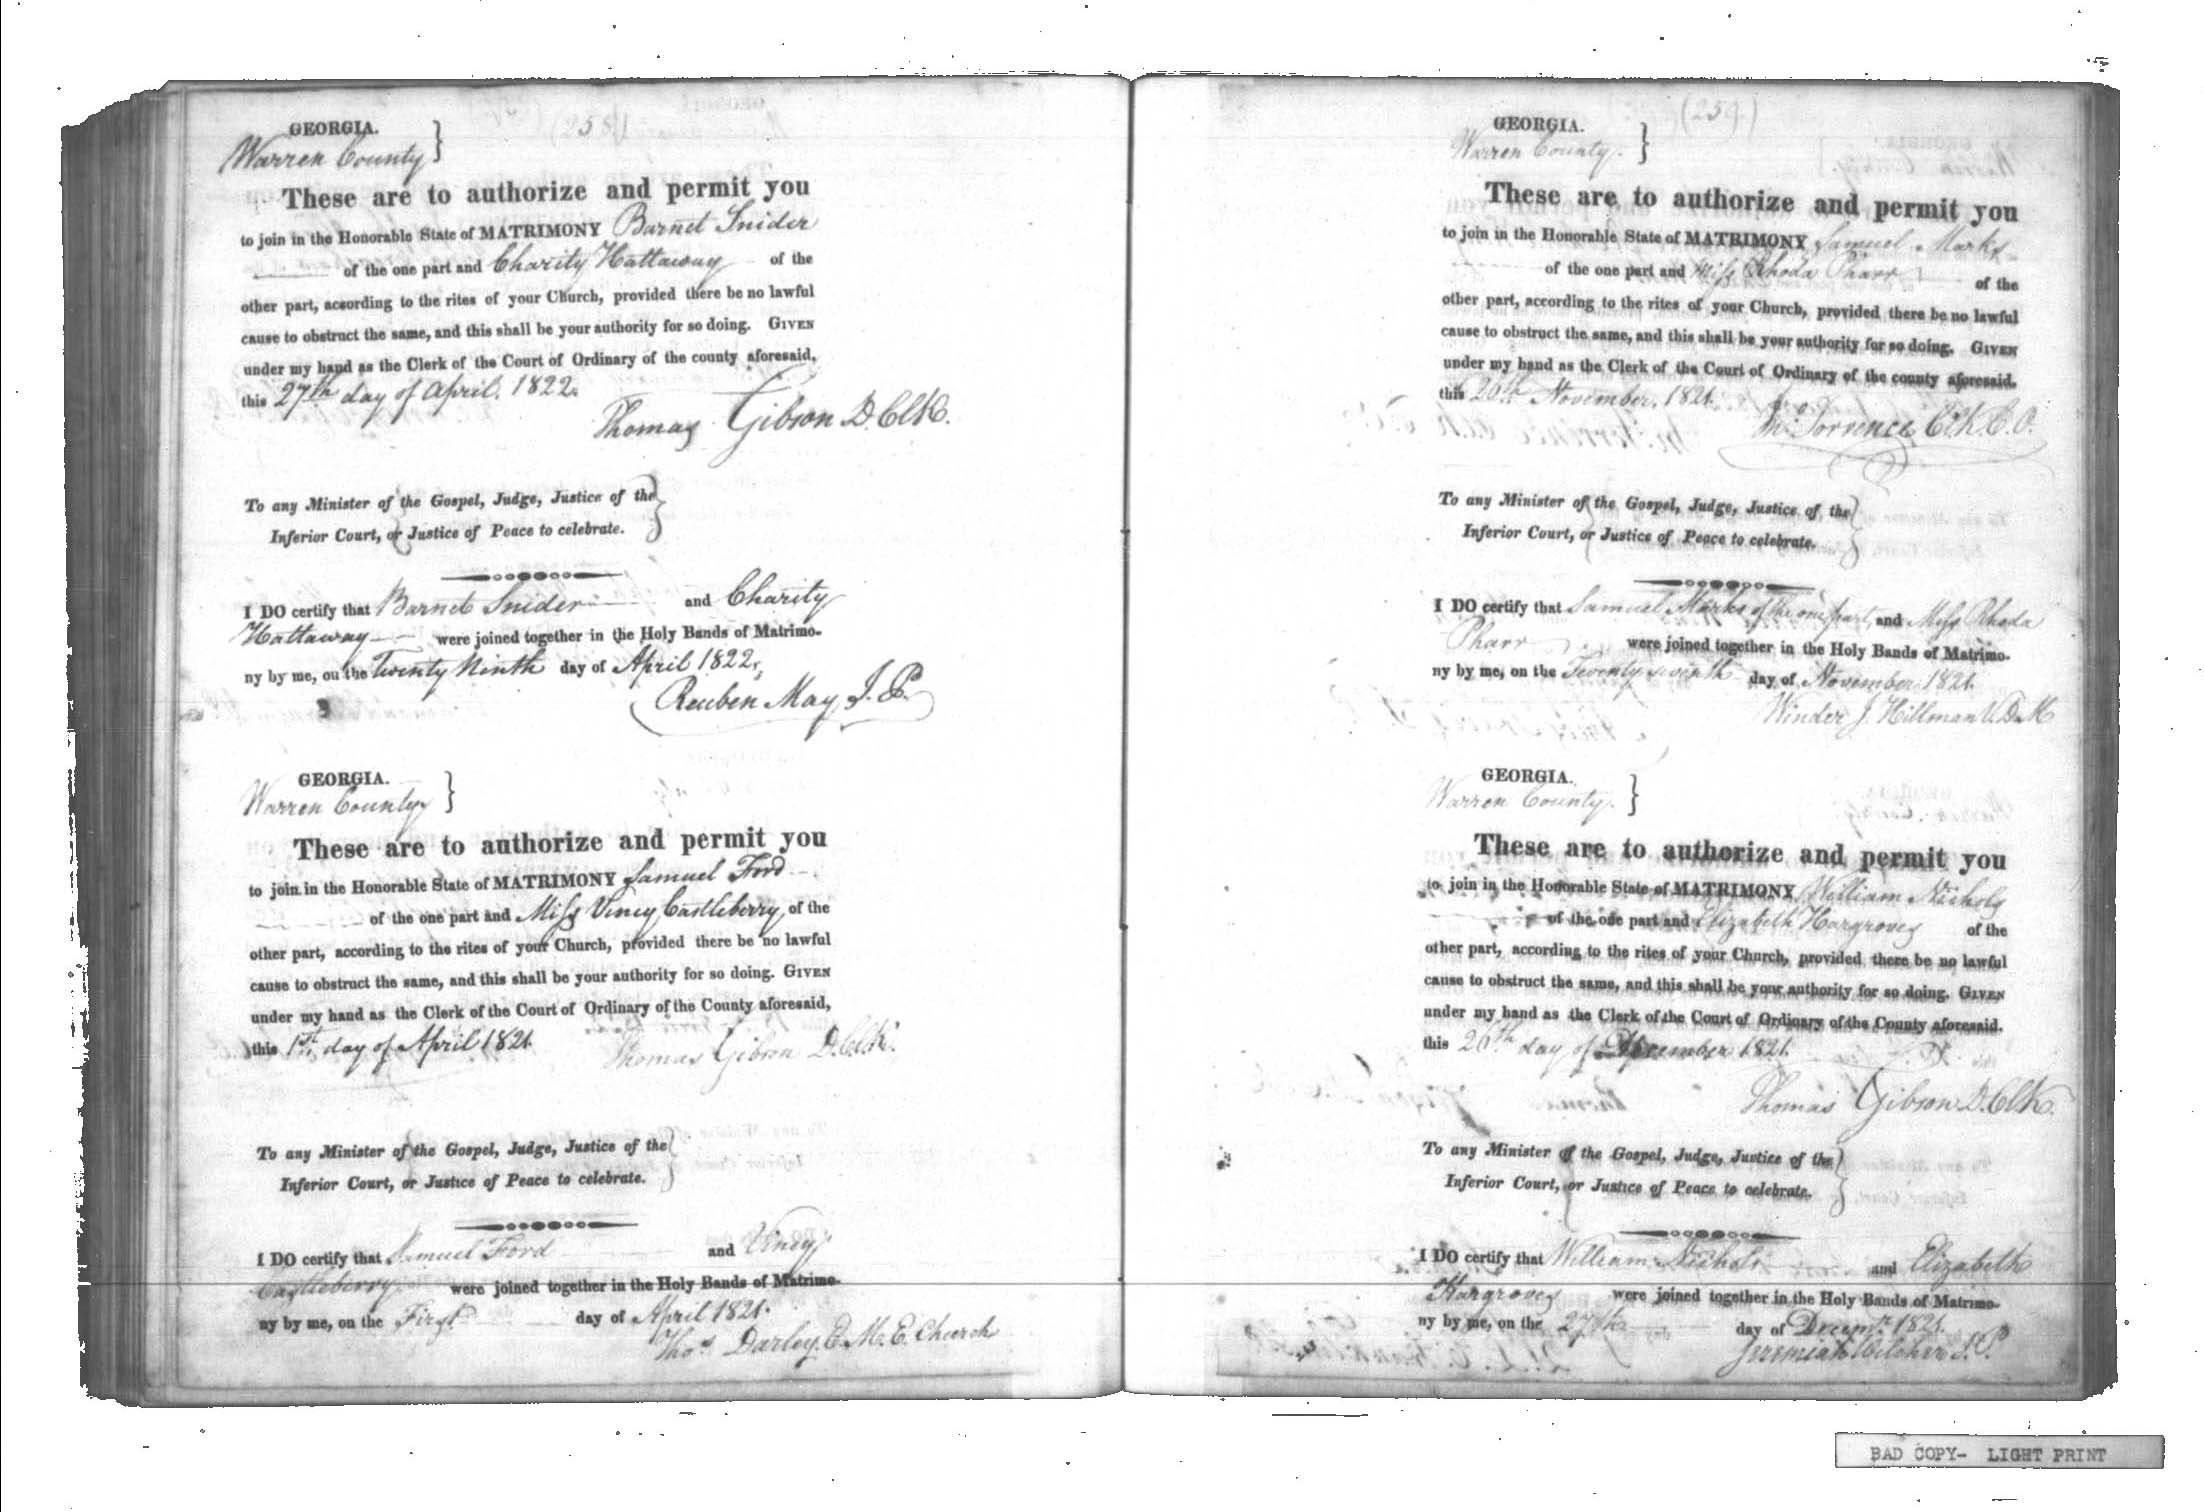 (258)
GEORGIA.
Warren County }
These are to authorize and permit you
to join in the Honorable State of MATRIMONY Barnet Snider
of the one part and Charity Hattaway of the
other part, according to the rites of your Church, provided there be no lawful
cause to obstruct the same, and this shall be your authority for so doing. GIVEN
under my hand as the Clerk of the Court of Ordinary of the county aforesaid,
this 27th day of April. 1822.
Thomas Gibson D. ClK.
To any Minister of the Gospel, Judge, Justice of the
Inferior Court, or Justice of Peace to celebrate. }
I DO certify that Barnet Snider and Charity
Hattaway were joined together in the Holy Bands of Matrimo-
ny by me, on the Twenty Ninth day of April 1822,
Reuben May J. P.
GEORGIA.
Warren County }
These are to authorize and permit you
to join in the Honorable State of MATRIMONY Samuel Ford
of the one part and Miss Viney Castleberry of the
other part, according to the rites of your Church, provided there be no lawful
cause to obstruct the same, and this shall be your authority for so doing. GIVEN
under my hand as the Clerk of the Court of Ordinary of the County aforesaid,
this 1st day of April 1821.
Thomas Gibson D. ClK.
To any Minister of the Gospel, Judge, Justice of the
Inferior Court, or Justice of Peace to celebrate. }
I DO certify that Samuel Ford and Viney
Castleberry were joined together in the Holy Bands of Matrimo-
ny by me, on the First day of April 1821.
Thos Darley. E. M. E. Church
(259.)
GEORGIA.
Warren County. }
These are to authorize and permit you
to join in the Honorable State of MATRIMONY Samuel Marks
of the one part and Miss Rhoda Pharr of the
other part, according to the rites of your Church, provided there be no lawful
cause to obstruct the same, and this shall be your authority for so doing. GIVEN
under my hand as the Clerk of the Court of Ordinary of the county aforesaid,
this 26th November. 1821.
Torrence ClK. C. O.
To any Minister of the Gospel, Judge, Justice of the
Inferior Court, or Justice of Peace to celebrate. }
I DO certify that Samuel Marks of the one part, and Miss Rhoda
Pharr were joined together in the Holy Bands of Matrimo-
ny by me, on the Twenty seventh day of November 1821.
Winder J. Hillman V. D. M
GEORGIA.
Warren County. }
These are to authorize and permit you
to join in the Honorable State of MATRIMONY William Nichols
of the one part and Elizabeth Hargroves of the
other part, according to the rites of your Church, provided there be no lawful
cause to obstruct the same, and this shall be your authority for so doing. GIVEN
under my hand as the Clerk of the Court of Ordinary of the County aforesaid.
this 26th day of December 1821.
Thomas Gibson D. ClK.
To any Minister of the Gospel, Judge, Justice of the
Inferior Court, or Justice of Peace to celebrate. }
I DO certify that William Nichols and Elizabeth
Hargroves were joined together in the Holy Bands of Matrimo-
ny by me, on the 27th day of Decemr 1821.
Jeremiah Wilcher J. P.
BAD COPY- LIGHT PRINT